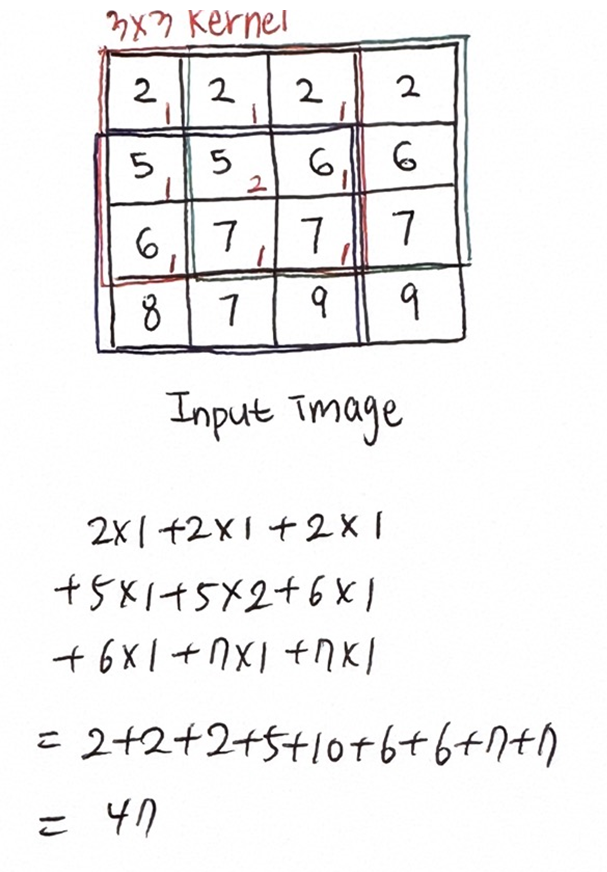 3x3 Kernel
2 1 2 1 2 1 2
5 1 5 2 6 1 6
6 1 7 1 7 1 7
8 7 9 9
Input image
2x1+2x1+2x1
+5x1+5x2+6x1
+6x1+7x1+7x1
=2+2+2+5+10+6+6+7+7
= 47